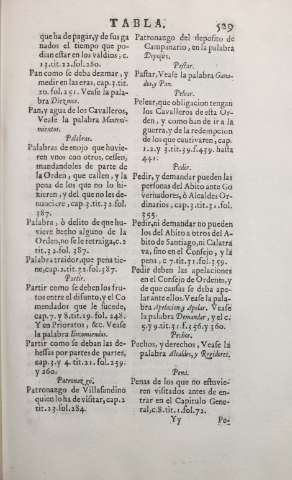 TABLA. 529
que ha de pagar, y de sus ga
nados el tiempo que po-
dian estar en los valdios, c.
13. tit. 22. fol. 280.
Pan como se deba dezmar, y
medir en las eras, cap. 3. tit.
20. fol. 251. Vease la pala-
bra Diezmos.
Pan, y agua de los Cavalleros,
Vease la palabra Manteni-
mientos.
Palabras.
Palabras de enojo que huvie-
ren vnos con otros, cessen,
mandandoles de parte de
la Orden, que callen, y la
pena de los que no lo hi-
zieren, y del que no les de-
nunciere, cap. 3. tit. 32. fol.
387.
Palabra, ò delito de que hu-
viere hecho alguno de la
Orden, no se le retraiga, c. 2
tit. 32. fol. 387.
Palabra traidor, que pena tie-
ne, cap. 2. tit. 31. fol. 387.
Partir.
Partir como se deben los fru-
tos entre el difunto, y el Co
mendador que le sucede,
cap. 7. y 8. tit. 19. fol. 248.
Y en Prioratos, &c. Vease
la palabra Encomiendas.
Partir como se deban las de-
hessas por partes de partes,
cap. 3. y 4. tit. 21. fol. 259.
y 260.
Patronazgo.
Patronazgo de Villasandino
quien lo ha de visitar, cap. 2
tit. 23. fol. 284.
Patronazgo del deposito de
Campanario, en la palabra
Deposito.
Pastar.
Pastar, Vease la palabra Gana-
dos, y Pan.
Pelear.
Pelear, que obligacion tengan
los Cavalleros de esta Or-
den, y como han de ir a la
guerra, y de la redempcion
de los que cautivaren, cap.
1. 2. y 3. tit. 39. f. 439. hasta
441.
Pedir.
Pedir, y demandar pueden las
personas del Abito ante Go
vernadores, ò Alcaldes Or-
dinarios, cap. 3. tit. 31. fol.
355.
Pedir, ni demandar no pueden
los del Abito a otros del A-
bito de Santiago, ni Calatra
va, sino en el Consejo, y la
pena, c. 7. tit. 31. fol. 359.
Pedir deben las apelaciones
en el Consejo de Ordenes, y
de que causas se deba ape-
lar ante ellos. Vease la pala-
bra Apelacion, y Apelar. Vease
la palabra Demandar, y el c.
5. y 9. tit. 31. f. 356. y 360.
Pechos.
Pechos, y derechos, Vease la
palabra Alcaldes, y Regidores.
Pena.
Penas de los que no estuvie-
ren visitados antes de en-
trar en el Capitulo Gene-
ral, c. 8. tit. 1. fol. 72.
Yy Pe-